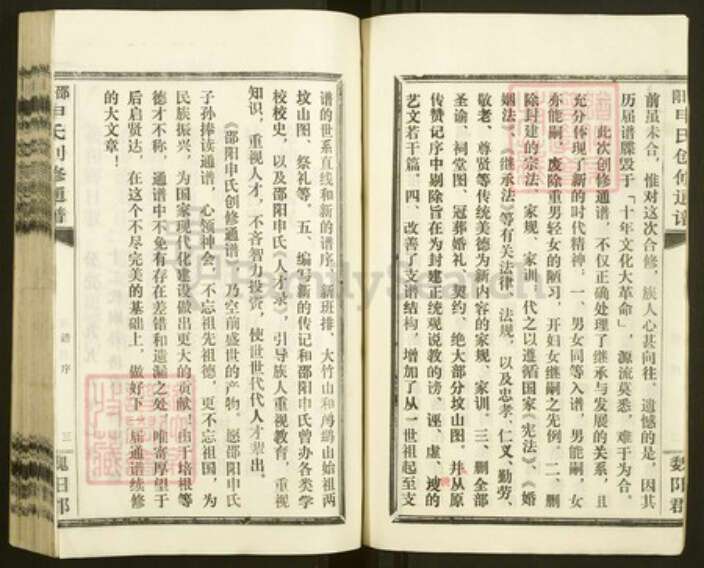 前虽未合，惟对这次合修，族人心甚向往。遗憾的是，因其
历届谱牒毁于「十年文化大革命」，源流莫悉，难于为合。
此次创修通谱，不仅正确处理了继承与发展的关系，且
充分体现了新的时代精神。一、男女同等入谱，男能嗣，女
亦能嗣，废除重男轻女的陋习，开妇女继嗣之先例。二、删
除封建的宗法、家规、家训，代之以遵循国家《宪法》、《婚
姻法》、《继承法》等有关法律、法规，以及忠孝、仁义、勤劳、
敬老、尊贤等传统美德为新内容的家规、家训。三、删全部
圣谕、祠堂图、冠葬婚礼、契约、绝大部分坟山图。并从原
传赞记序中剔除旨在为封建正统观说教的谤、诬、虚、谀的
艺文若干篇。四、改善了支谱结构，增加了从一世祖起至支
魏阳郡
邵申氏创修通谱
谱的世系直线和新的谱序、新班排、大竹山和鸬鹚山始祖两
坟山图、祭礼等。五、编写新的传记和邵阳申氏曾办各类学
校校史，以及邵阳申氏《人才录》，引导族人重视教育，重视
知识，重视人才，不吝智力投资，使世世代代人才辈出。
《邵阳申氏创修通谱》乃空前盛世的产物。愿邵阳申氏
子孙捧读通谱，心领神会，不忘祖先祖德，更不忘祖国，为
民族振兴，为国家现代化建设做出更大的贡献！由于培根等
德才不称，通谱中不免有存在差错和遗漏之处，唯寄厚望于
后启贤达，在这个不尽完美的基础上，做好下一届通谱续修
的大文章！
谱序
三
FamilySearch